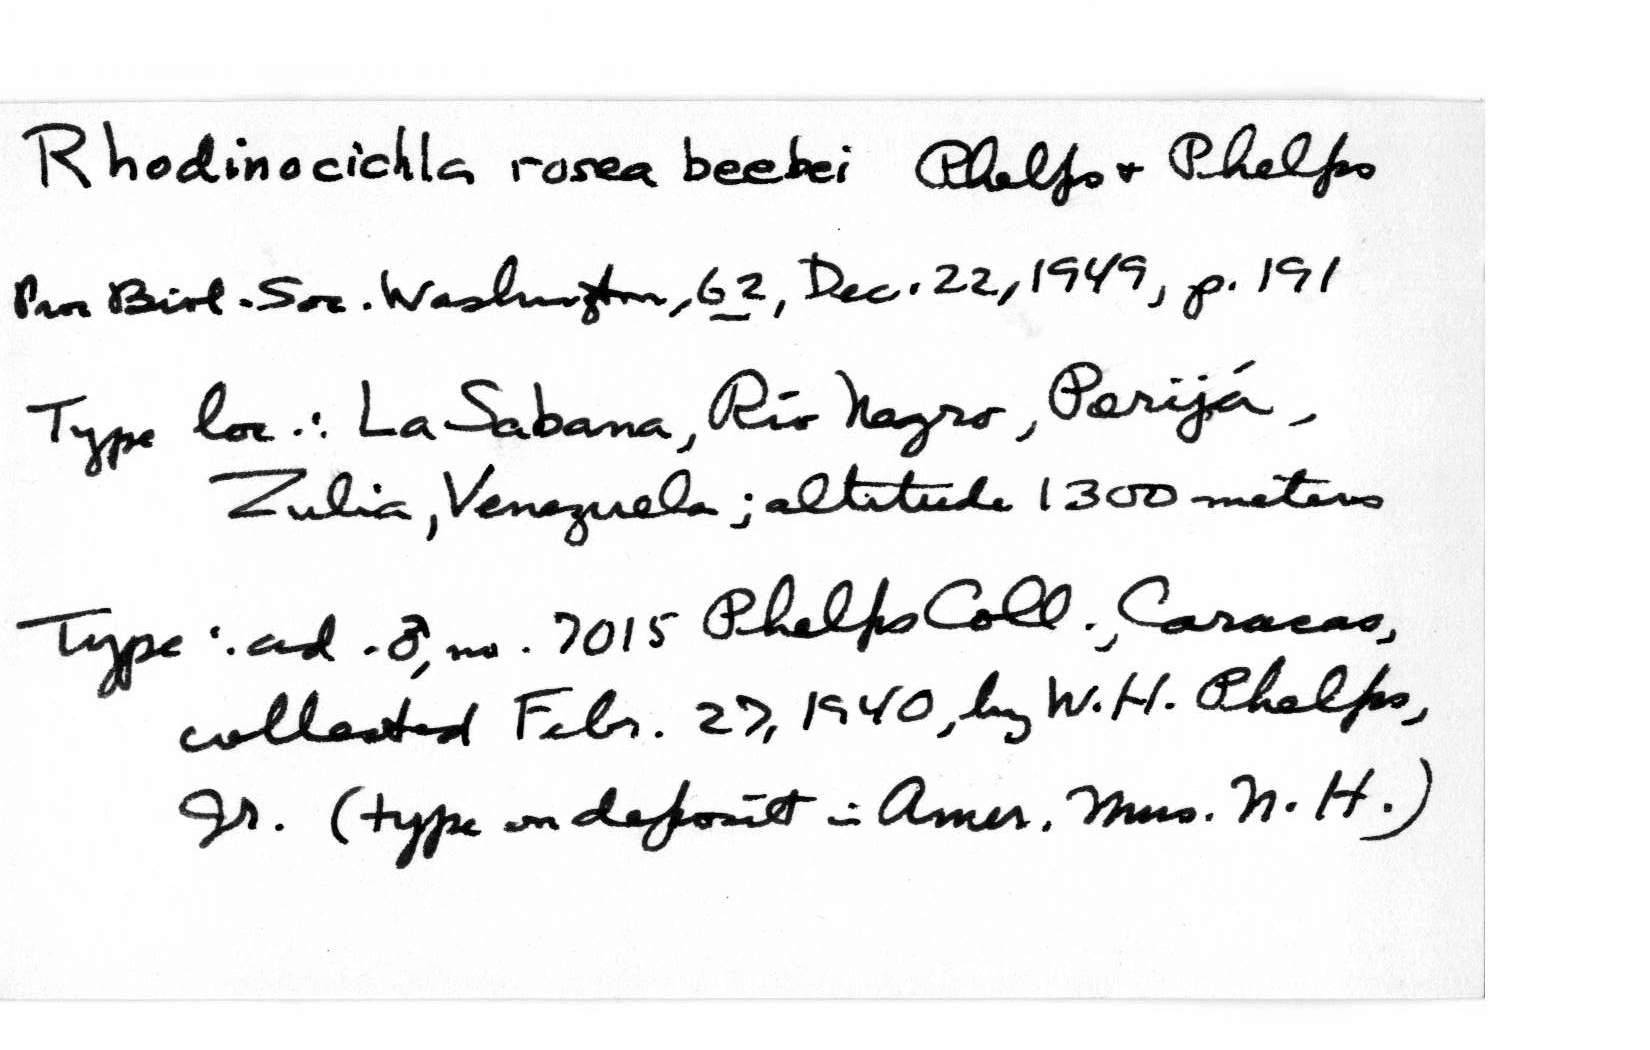 Rhodinocichla rosea beebei Phelps & Phelps
Proc Biol. Soc. Washington, 62, Dec. 22, 1949, p. 191
Type loc.: La Sabana, Río Negro, Perijá,
Zulia, Venezuela; altitude 1300 meters
Type: ad. ♂, no. 7015 Phelps Coll., Caracas,
collected Febr. 27, 1940, by W. H. Phelps,
Jr. (type on deposit in Amer. Mus. N. H.)